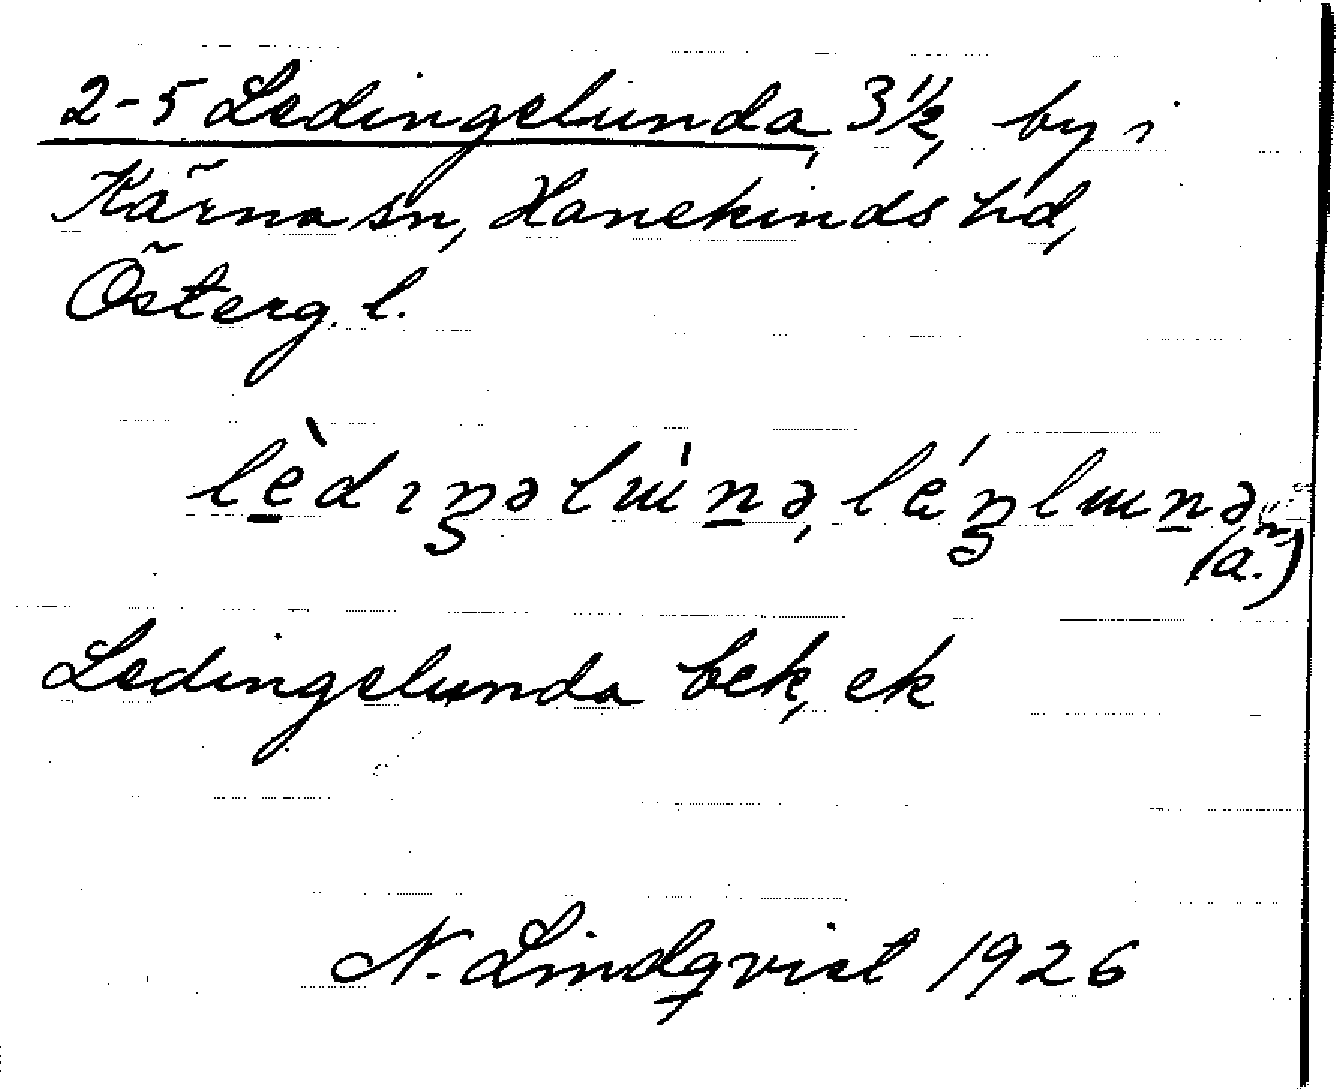 2-5 Ledingelunda, 3 1/2, by i
Kärna sn, Hanekinds hd,
Österg. l.
Ledingelunda bek, ek
N. Lindqvist 1926